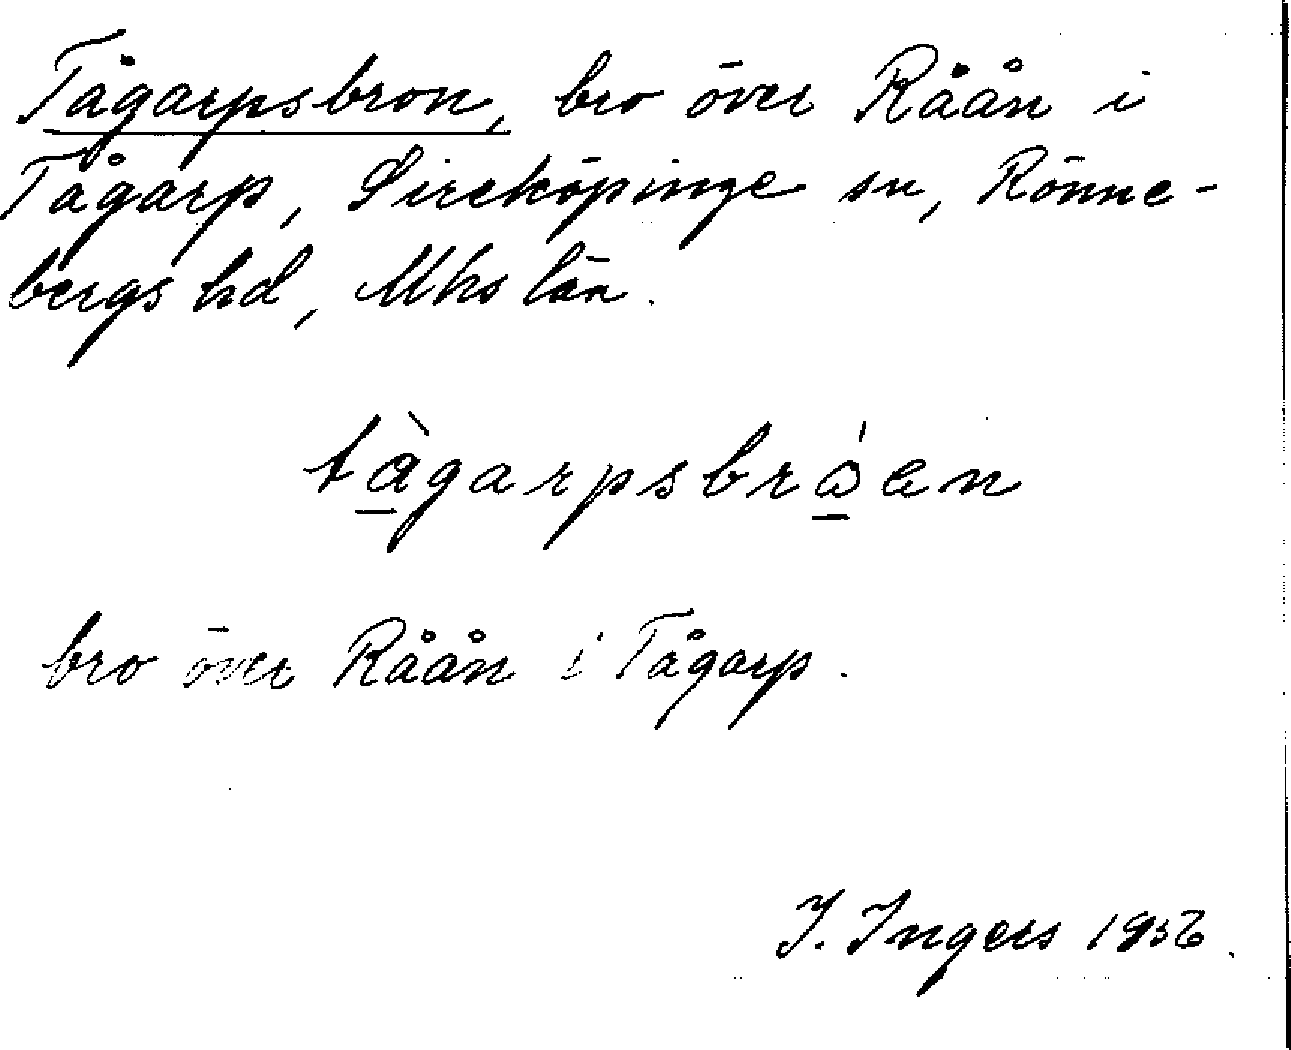 Tågarpsbron, bro över Råån i
Tågarp, Sireköpinge sn, Rönne-
bergs hd, Mhs län.
tàgarpsbróen
bro över Råån i Tågarp.
I. Ingers 1956.